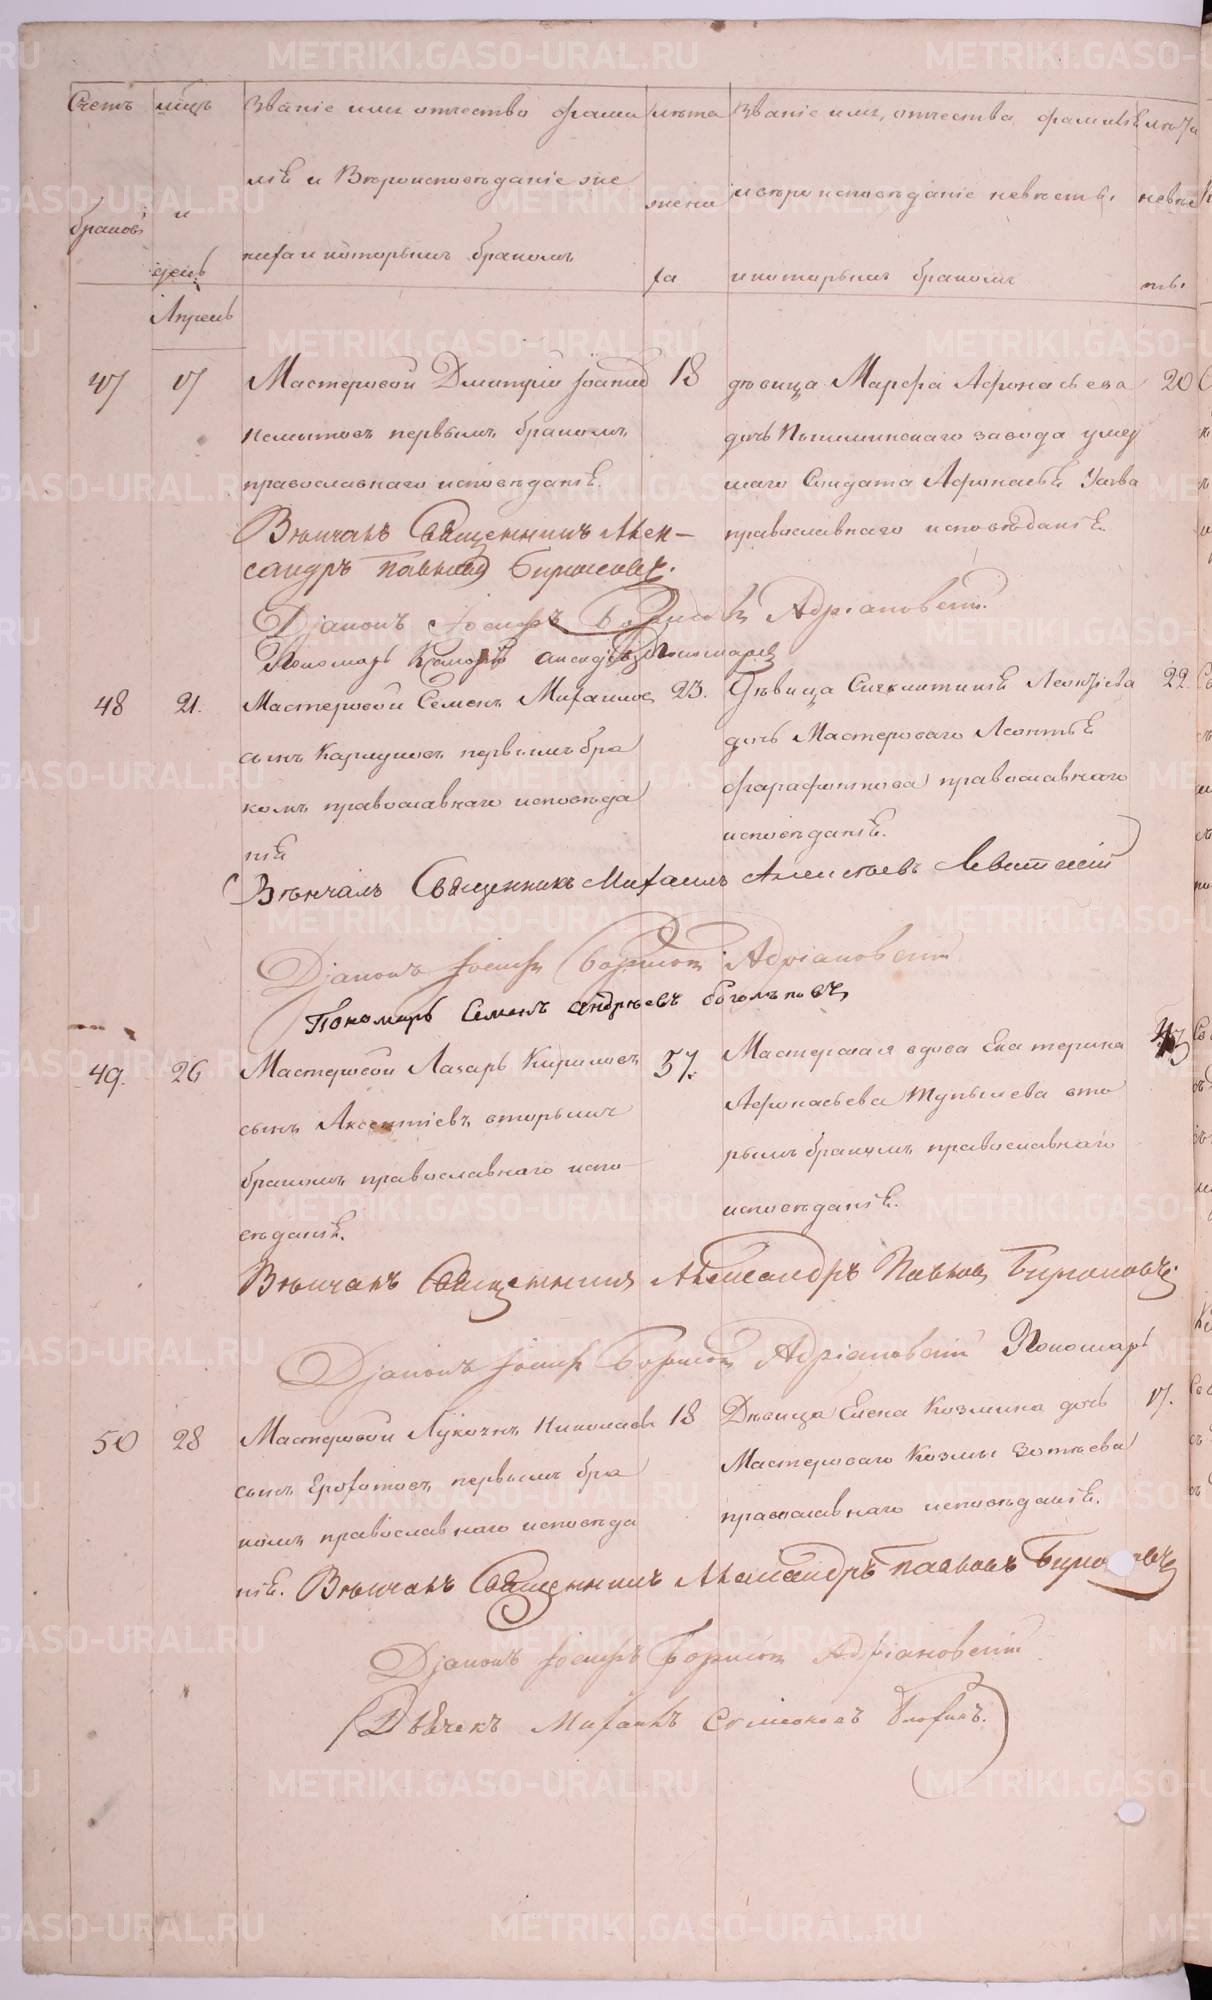 Счетъ
браковъ
мцъ
и
день
Званіе имя отчество фами
ліе и Вѣроисповѣданіе же
ниха и которымъ бракомъ
лѣта
жени
ха
Званіе имя, отчества, фамиліе
и вѣроисповѣданіе невѣсты.
и которымъ бракомъ
лѣта
невѣс
ты.
Апрель
47
17
Мастеровой Дмитрій
18
первымъ бракомъ
православнаго исповѣданіе.
дѣвица Марфа Афонасьева
20
дочь Пышминскаго завода умер
шаго Солдата Афонасье
православнаго исповѣданіе.
Вѣнчалъ Священникъ Алек-
сандръ Павловъ Бирюковъ.
Діаконъ Іосифъ Борисовъ Адріановскій
Пономарь
48
21.
Мастеровой Семенъ Михаилов
23.
сынъ первымъ бра
комъ православнаго исповѣда
ніе
Дѣвица Леонтьева
22.
дочь Мастероваго Леонтье
православнаго
исповѣданіе.
Вѣнчалъ Священникъ Михаилъ Алексѣевъ Левитскій
Діаконъ Іосифъ Борисовъ Адріановскій
Пономарь Семенъ Андрѣевъ Боголѣповъ
49.
26
Мастеровой Лазарь Кириловъ
57.
сынъ Аксентіевъ вторымъ
бракомъ православнаго испо-
вѣданіе.
Мастерская вдова Екатерина
Афонасьева вто
рымъ бракомъ православнаго
исповѣданіе.
Вѣнчалъ Священникъ Александръ Павловъ Бирюковъ.
Діаконъ Іосифъ Борисовъ Адріановскій Пономарь
50
28
Мастеровой Николаевъ
18
сынъ первымъ бра
комъ православнаго исповѣда
ніе.
Дѣвица Елена Козмина дочь
17.
Мастероваго Козмы Зотѣева
православнаго исповѣданіе.
Вѣнчалъ Священникъ Александръ Павловъ
Діаконъ Іосифъ Борисовъ Адріановскій
Дьячекъ Михаилъ Симеоновъ
METRIKI.GASO-URAL.RU